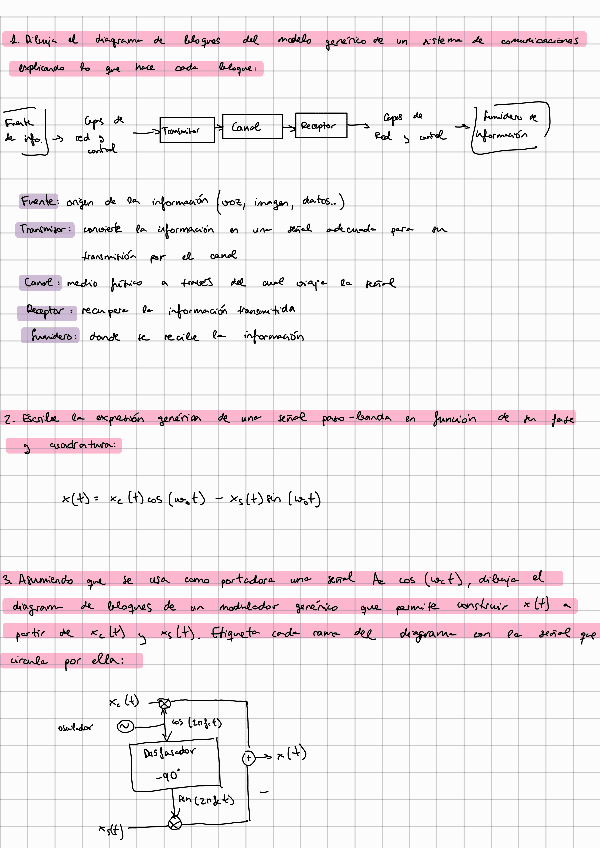 1. Dibuja el diagrama de bloques del modelo genérico de un sistema de comunicaciones
explicando lo que hace cada bloque:
Fuente de info. → Capas de red y control → Transmisor → Canal → Receptor → Capas de Red y control → Sumidero de información
Fuente: origen de la información (voz, imagen, datos..)
Transmisor: convierte la información en una señal adecuada para su
transmisión por el canal
Canal: medio físico a través del cual viaja la señal
Receptor: recupera la información transmitida
Sumidero: donde se recibe la información
2. Escribe la expresión genérica de una señal paso-banda en función de su fase
y cuadratura:
x(t) = xc(t) cos(ω₀t) - xs(t) sin(ω₀t)
3. Asumiendo que se usa como portadora una señal Ac cos(ωct), dibuja el
diagrama de bloques de un modulador genérico que permite construir x(t) a
partir de xc(t) y xs(t). Etiqueta cada rama del diagrama con la señal que
circula por ella:
xc(t)
oscilador
cos(2πfct)
Desfasador
-90°
+ → x(t)
sen(2πfct)
-
xs(t)